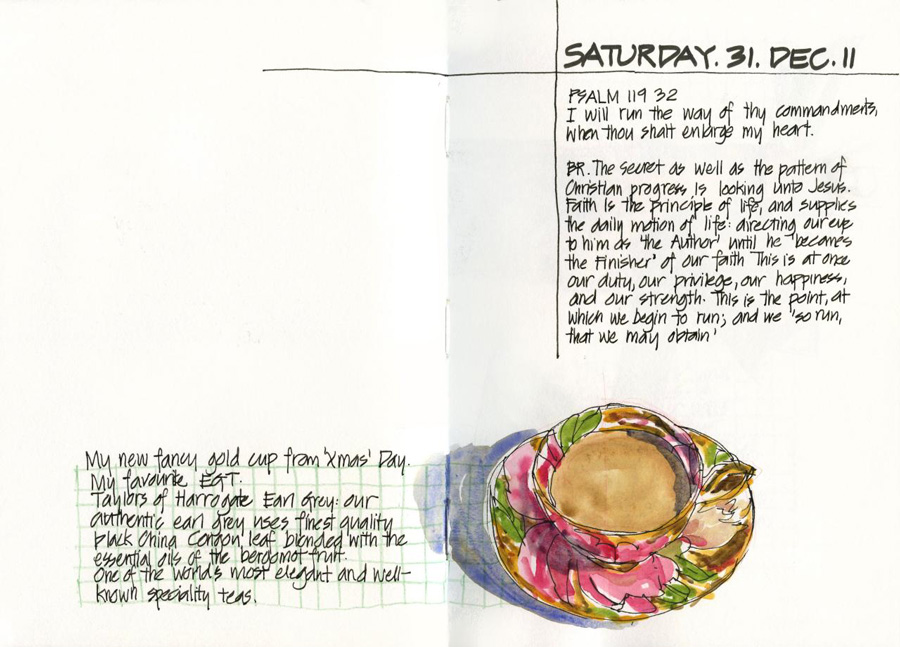 My new fancy gold cup from 'Xmas' Day.
My favourite EGT.
Taylors of Harrogate Earl Grey: our
authentic earl grey uses finest quality
black China Congou leaf blended with the
essential oils of the bergamot fruit.
One of the world's most elegant and well-
known speciality teas.
SATURDAY. 31. DEC. 11
PSALM 119 32
I will run the way of thy commandments,
when thou shalt enlarge my heart.
BR. The secret as well as the pattern of
Christian progress is looking unto Jesus.
Faith is the principle of life, and supplies
the daily motion of life: directing our eye
to him as 'the Author' until he 'becomes
the Finisher' of our faith This is at once
our duty, our privilege, our happiness,
and our strength. This is the point, at
which we begin to run; and we 'so run,
that we may obtain'